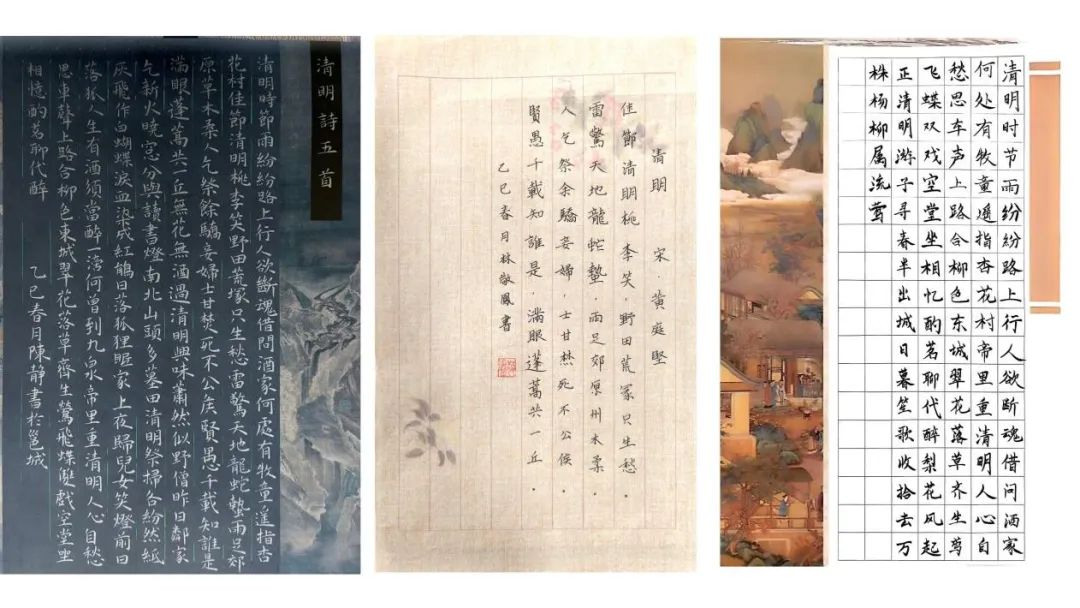 清明詩五首
清明時節雨紛紛路上行人欲斷魂借問酒家何處有牧童遙指杏
花村佳節清明桃李笑野田荒塚只生愁雷驚天地龍蛇蟄雨足郊
原草木柔人乞祭餘驕妾婦士甘焚死不公侯賢愚千載知誰是
滿眼蓬蒿共一丘無花無酒過清明興味蕭然似野僧昨日鄰家
乞新火曉窓分與讀書燈南北山頭多墓田清明祭掃各紛然紙
灰飛作白蝴蝶淚血染成紅鵑日落狐狸眠冢上夜歸兒女笑燈前日
落狐人生有酒須當醉滴何曾到九泉帝里重清明人心自愁
思車聲上路合柳色東城翠花落草齊生鶯飛蝶雙戲空堂坐
相憶酌茗聊代醉 乙巳春月陳靜書於邕城
清明 宋·黃庭堅
佳節清明桃李笑．野田荒冢只生愁．
雷驚天地龍蛇蟄．雨足郊原州木柔．
人乞祭余驕妾婦．士甘焚死不公侯．
賢愚千載知誰是．滿眼蓬蒿共一丘．
乙巳春月林敬鳳書
清明时节雨纷纷路上行人欲断魂借问酒家
何处有牧童遥指杏花村帝里重清明人心自
愁思车声上路合柳色东城翠花落草齐生莺
飞蝶双戏空堂坐相忆酌茗聊代醉梨花风起
正清明游子寻春半出城日暮笙歌收拾去万
株杨柳属流莺